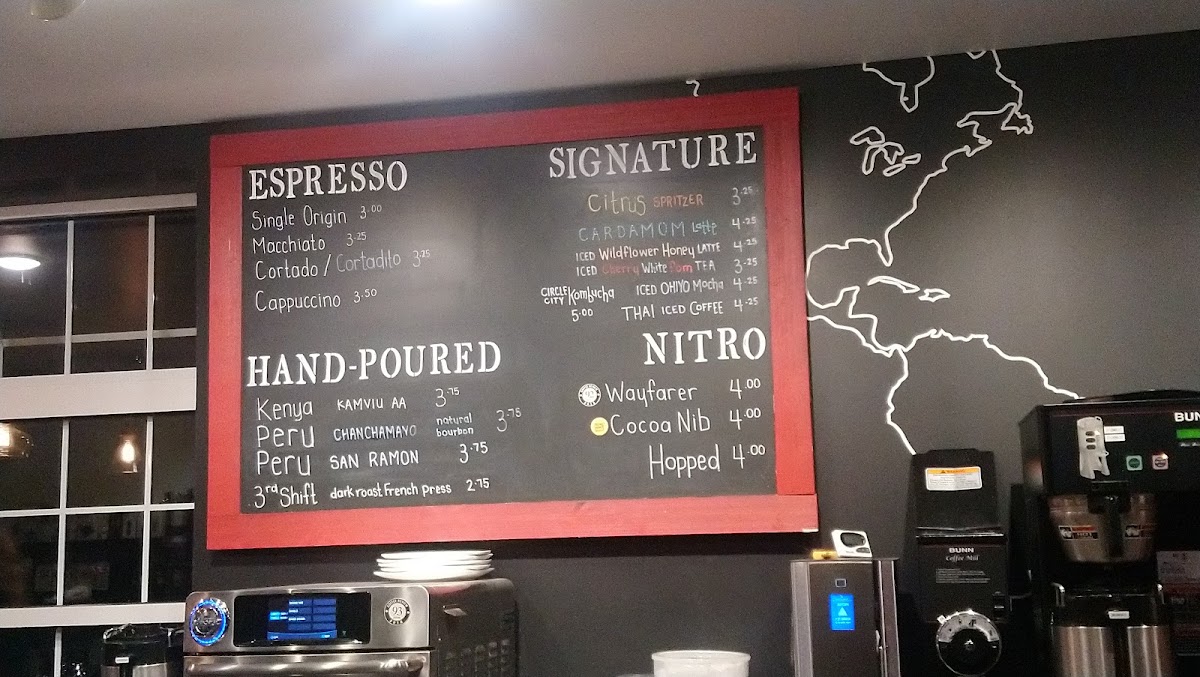 ESPRESSO
Single Origin 3.00
Macchiato 3.25
Cortado / Cortadito 3.25
Cappuccino 3.50
HAND-POURED
Kenya KAMVIU AA 3.75
Peru CHANCHAMAYO natural bourbon 3.75
Peru SAN RAMON 3.75
3rd Shift dark roast French press 2.75
SIGNATURE
Citrus SPRITZER 3.25
CARDAMOM Latte 4.25
ICED Wildflower Honey LATTE 4.25
ICED Cherry White Pom TEA 3.25
CIRCLE CITY Kombucha 5.00
ICED OHIYO Mocha 4.25
THAI ICED COFFEE 4.25
NITRO
Wayfarer 4.00
Cocoa Nib 4.00
Hopped 4.00
93
WARNING
BUNN
Coffee Mill
BUN